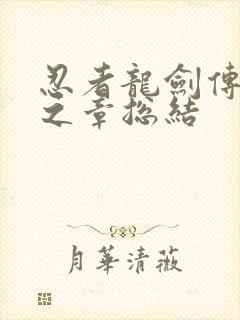 忍者龍劍傳
之章總結
月華清薇